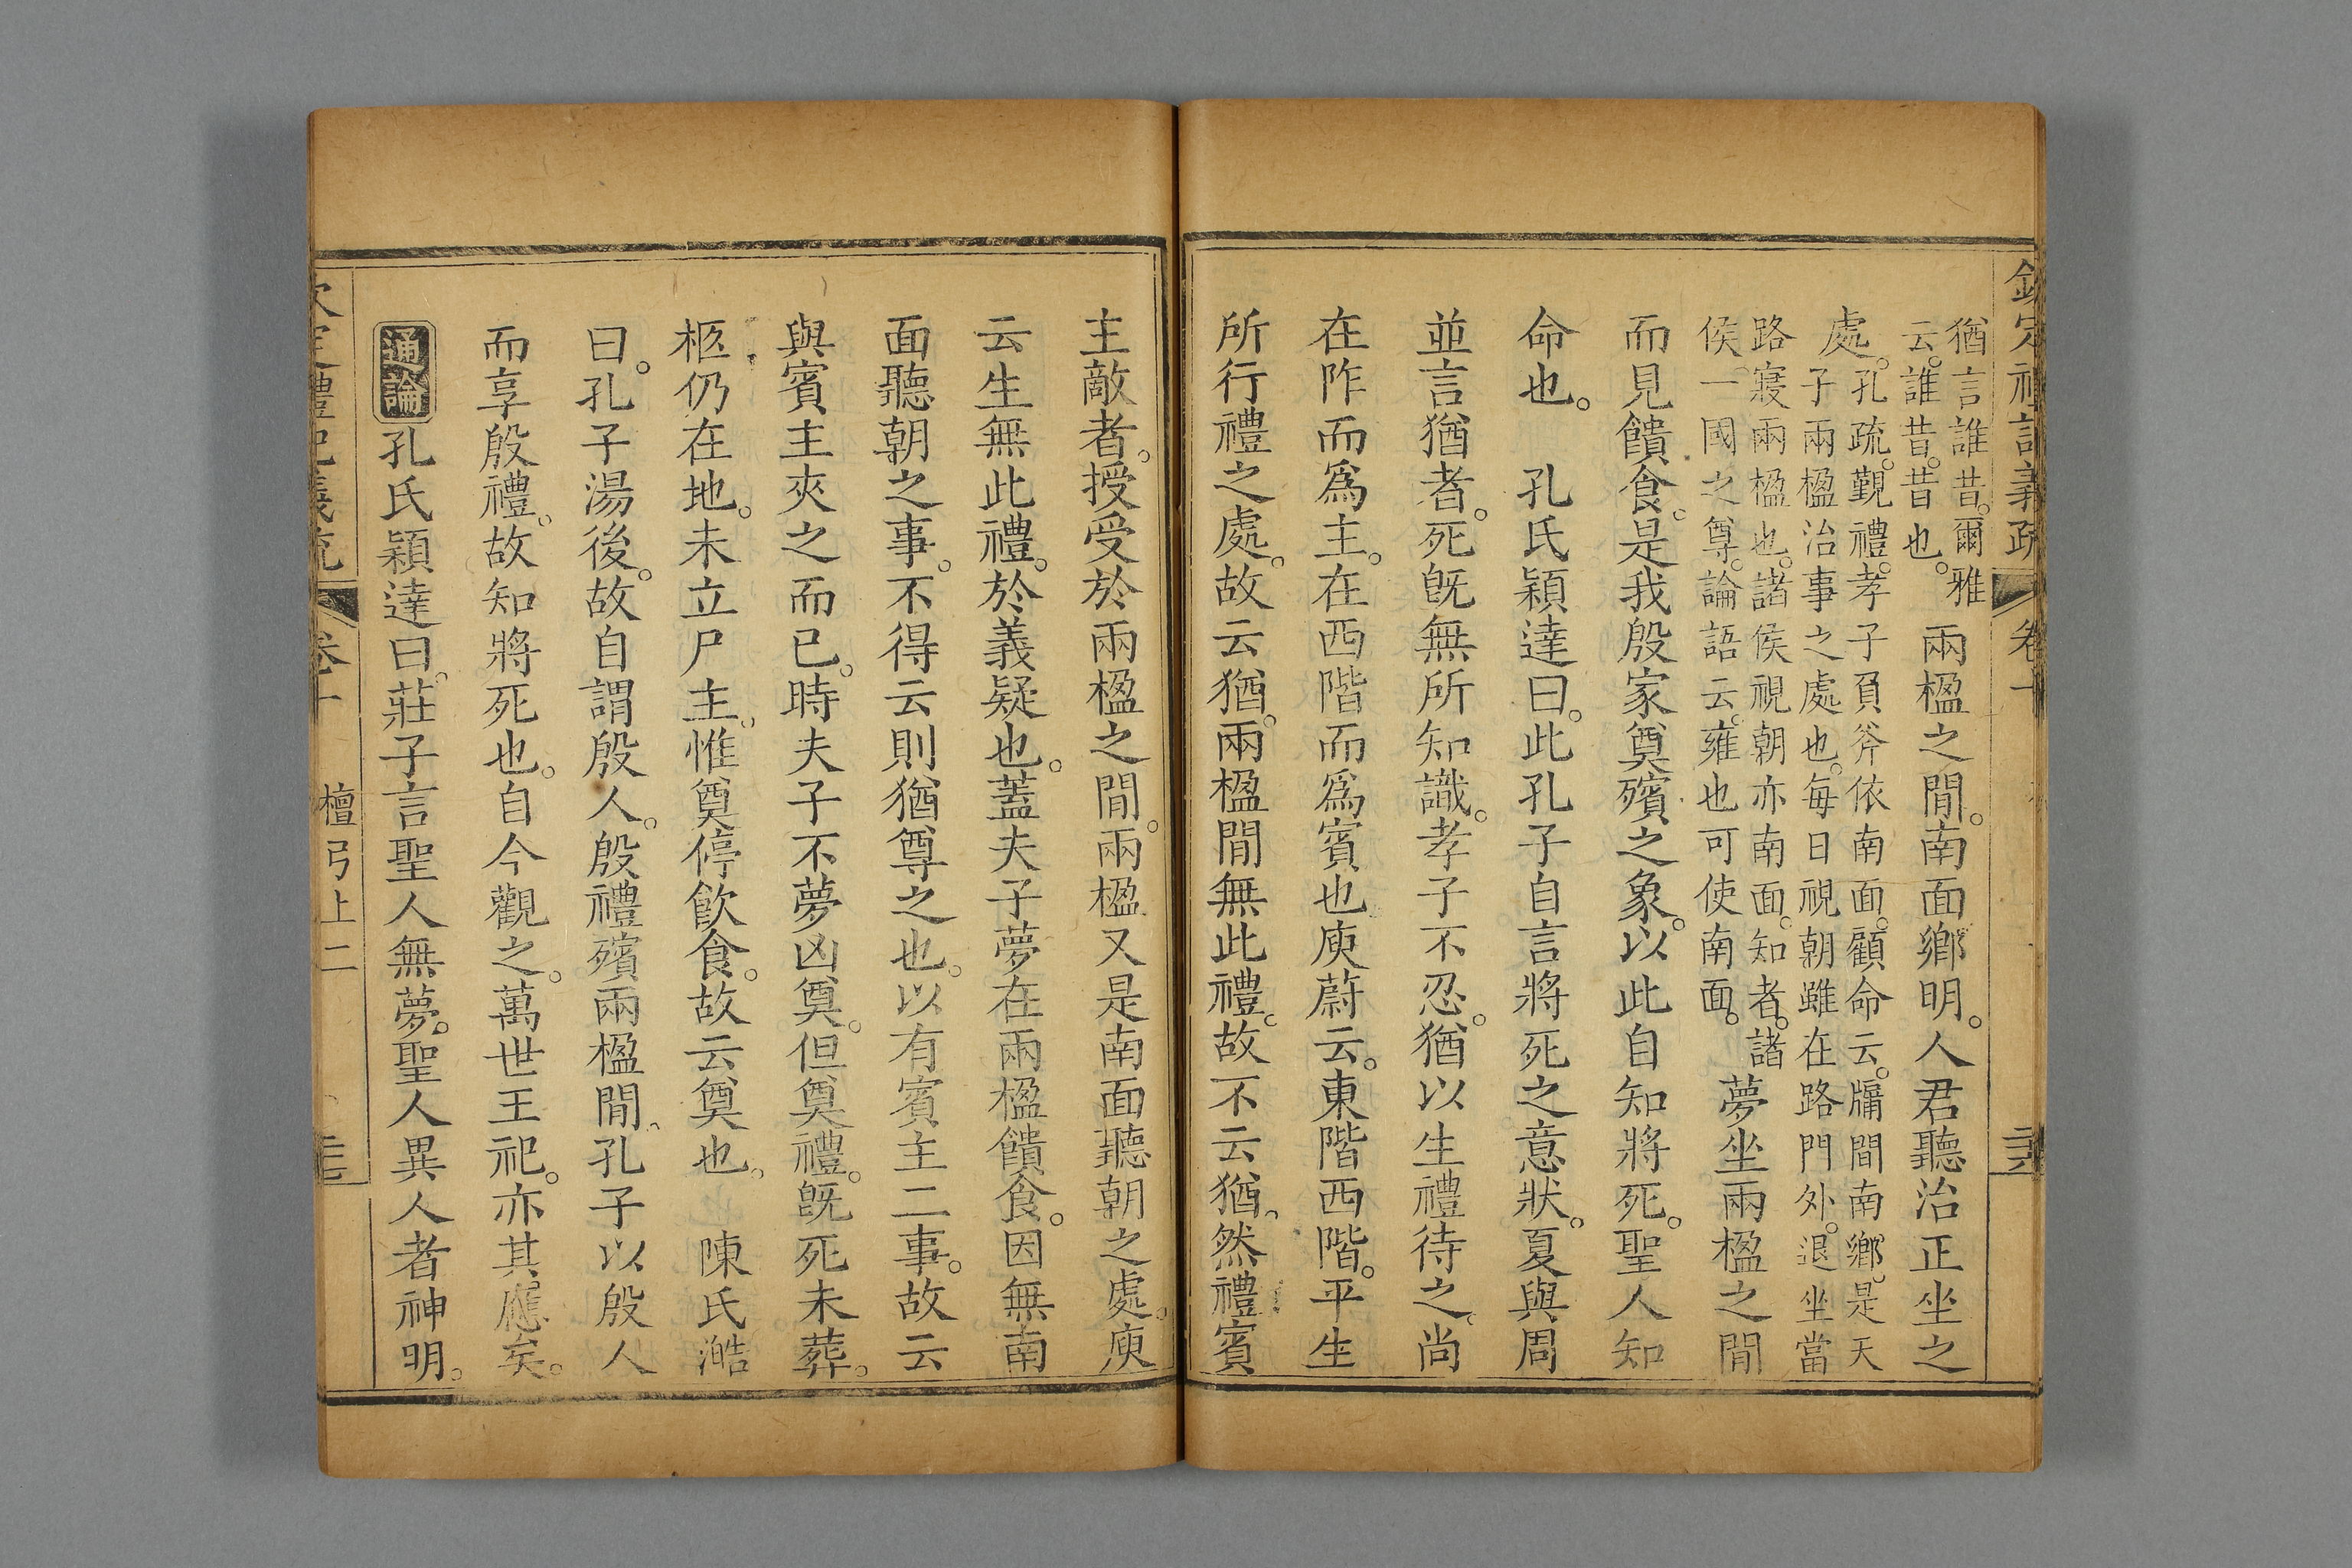 欽定禮記義疏 卷十
猶言誰昔。爾雅
云。誰昔。昔也。
兩楹之間。南面鄉明。人君聽治正坐之
處。
孔疏。覲禮。孝子負斧依南面。顧命云。牖間南鄉。是天
子兩楹治事之處也。每日視朝雖在路門外。退坐當
路寢兩楹也。諸侯視朝亦南面。知者。諸
侯一國之尊。論語云。雍也可使南面。
夢坐兩楹之間
而見饋食。是我殷家奠殯之象。以此自知將死。聖人知
命也。 孔氏穎達曰。此孔子自言將死之意狀。夏與周
並言猶者。死旣無所知識。孝子不忍。猶以生禮待之。尚
在阼而爲主。在西階而爲賓也庾蔚云。東階西階。平生
所行禮之處。故云猶。兩楹間無此禮。故不云猶。然禮賓
主敵者。授受於兩楹之間。兩楹又是南面聽朝之處。庾
云生無此禮。於義疑也。蓋夫子夢在兩楹饋食。因無南
面聽朝之事。不得云則猶尊之也。以有賓主二事。故云
與賓主夾之而已。時夫子不夢凶奠。但奠禮。旣死未葬。
柩仍在地。未立尸主。惟奠停飲食。故云奠也。 陳氏澔
曰。孔子湯後。故自謂殷人。殷禮殯兩楹間。孔子以殷人
而享殷禮。故知將死也。自今觀之。萬世王祀。亦其應矣。
通論 孔氏穎達曰。莊子言聖人無夢。聖人異人者神明。
欽定禮記義疏 卷十 檀弓上二